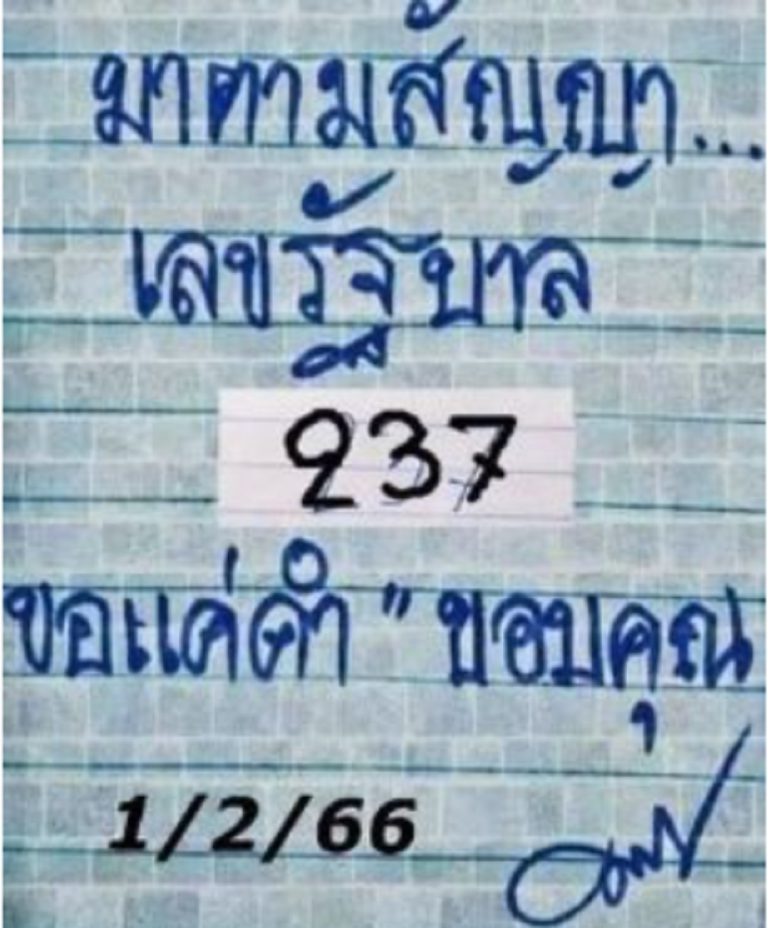 มาตามสัญญา...
เลขรัฐบาล
237
ขอแค่คำ "ขอบคุณ
1/2/66